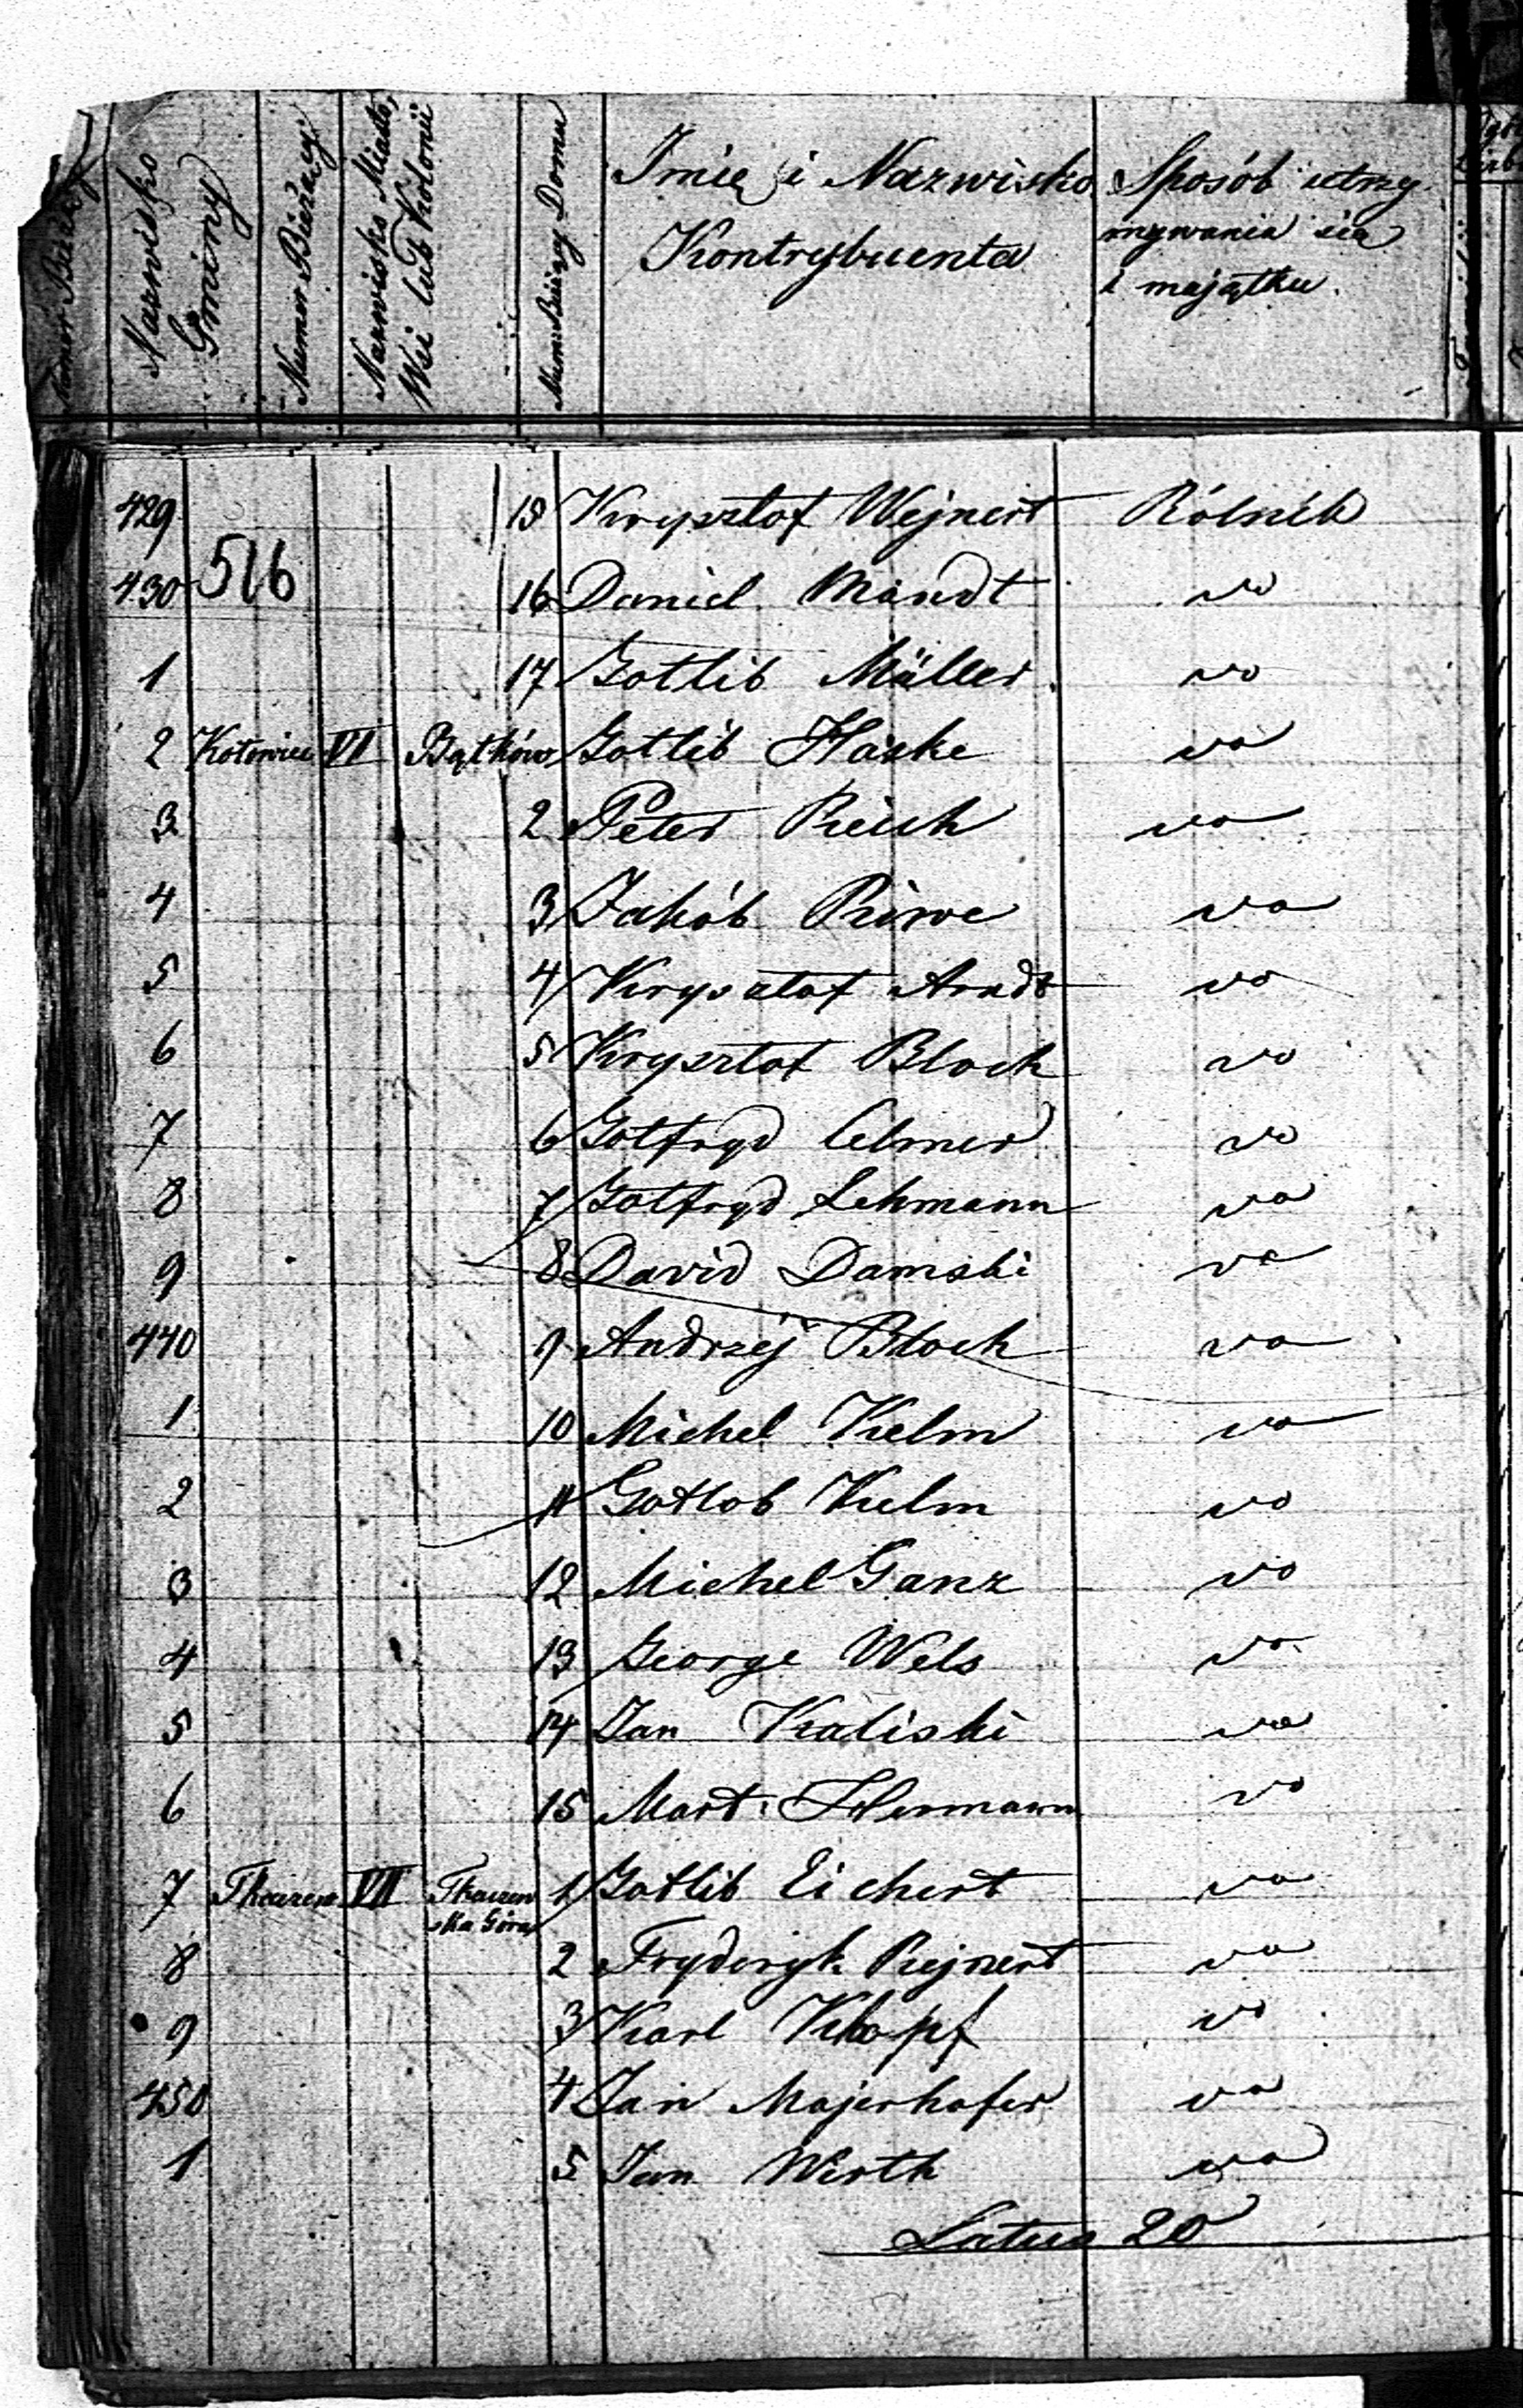 Numer Bieżący
Nazwisko Gminy
Numer Bieżący
Nazwisko Miasta, Wsi lub Kolonii
Num: Bieżący Domu
Imie i Nazwisko Kontrybuenta
Sposób utrzymywania się i majątku.
429 15 Krysztof Wejnert Rólnik
516
430 16 Daniel Mandt vo
1 17 Gotlib Müller vo
2 Kotowice VI Bątków Gotlib Haske vo
3 2 Peter Reich vo
4 3 Jakób Riwe vo
5 4 Krysztof Arndt vo
6 5 Krysztof Bloch vo
7 6 Gotfryd Celmer vo
8 7 Gotfryd Lehmann vo
9 8 David Damski vo
440 9 Andrzej Bloch vo
1 10 Michel Kelm vo
2 11 Gotlob Kelm vo
3 12 Michel Ganz vo
4 13 George Wels vo
5 14 Jan Kaliski vo
6 15 Mart: Hermann vo
7 VII 1 Gotlib Eichert vo
ska Góra
8 2 Fryderyk Rejnert vo
9 3 Karl Klopf vo
450 4 Jan Majerhofer vo
1 5 Jan Wirth vo
Latus 20